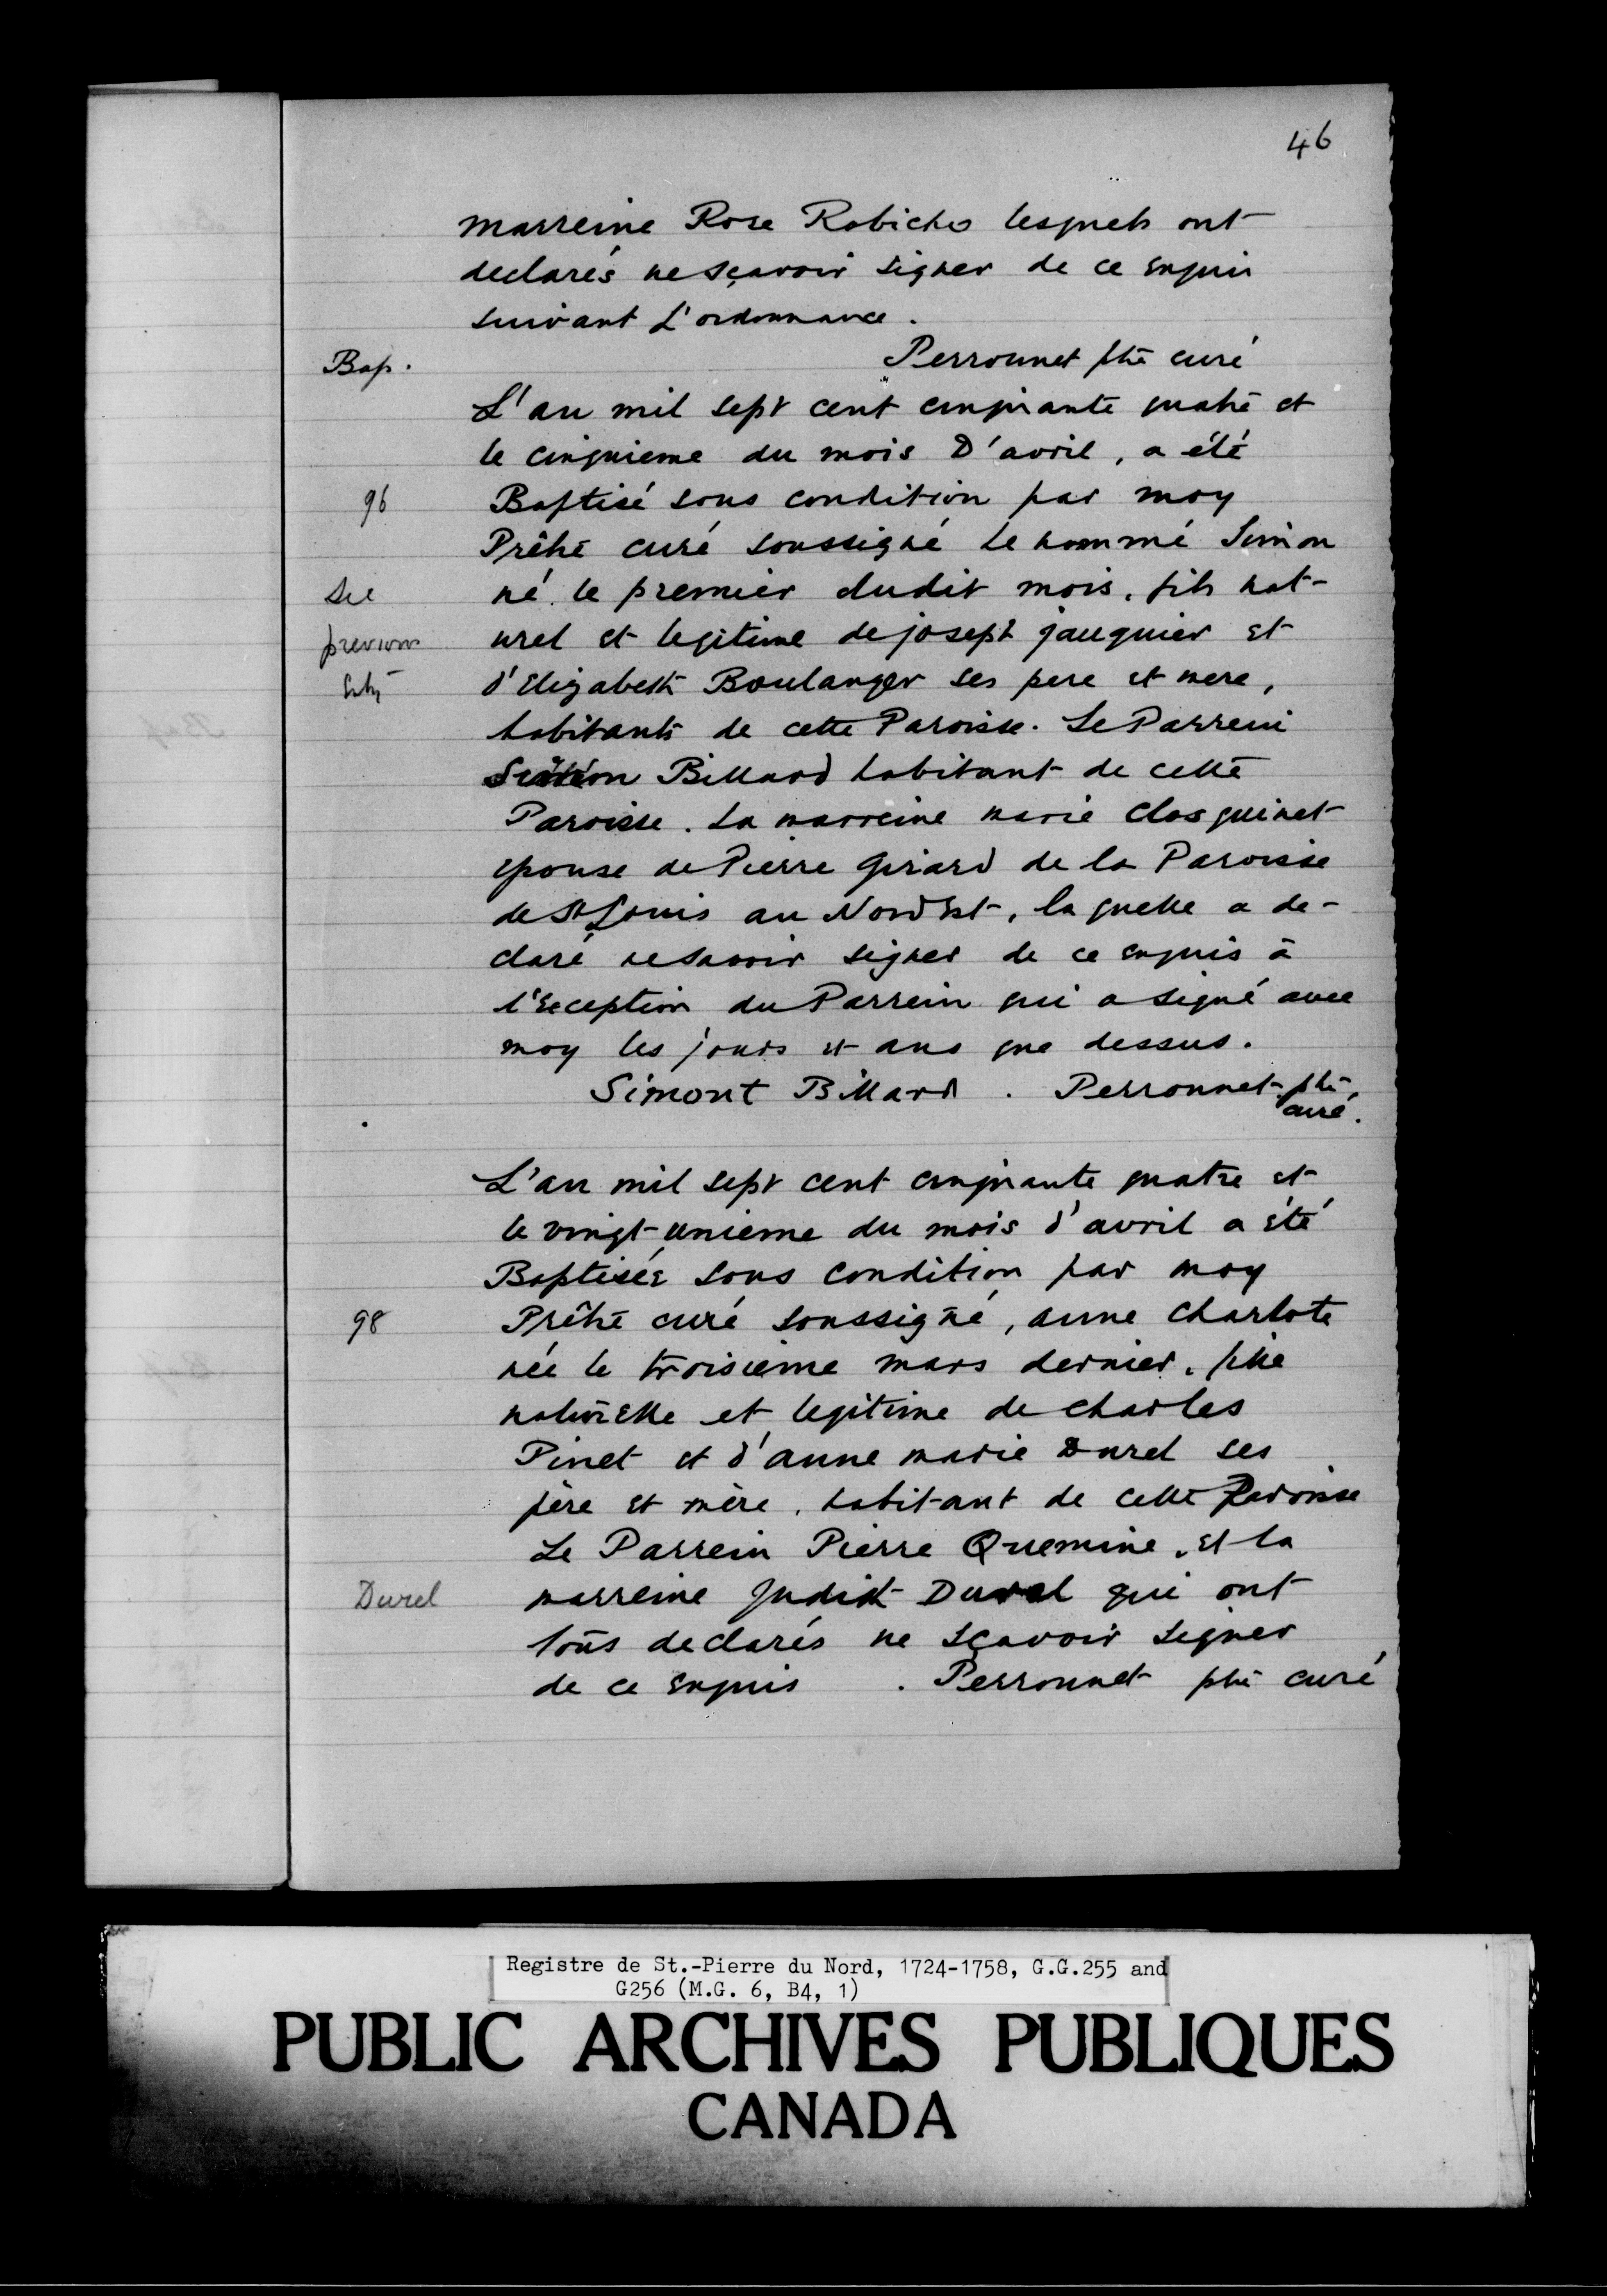 46
marreine Rose Robicho lesquels ont
declarés ne sçavoir signer de ce enquis
suivant L'ordonnance.
Bap.
Perronnet ptre curé
L'an mil sept cent cinquante quatre et
le cinquieme du mois D'avril, a été
96
Baptisé sous condition par moy
Prêtre curé soussigné le nommé Simon
See
né le premier dudit mois, fils nat-
previous
urel et legitime de joseph jauguier et
Entry
d'Elizabeth Boulanger ses pere et mere,
habitants de cette Paroisse. Le Parrein
Simon Billard habitant de cette
Paroisse. La marreine marie Closquinet
epouse de Pierre Girard de la Paroisse
de St Louis au Nord Est, la quelle a de-
claré ne savoir signer de ce enquis à
l'Exception du Parrein qui a signé avec
moy les jours et ans que dessus.
Simont Billard. Perronnet ptre
curé.
L'an mil sept cent cinquante quatre et
le vingt-unieme du mois d'avril a été
Baptisée sous condition par moy
98
Prêtre curé soussigné, anne charlote
née le troisieme mars dernier, fille
naturelle et legitime de charles
Pinet et d'anne marie Durel ses
père et mère, habitant de cette Paroisse
Le Parrein Pierre Quemine, et la
Durel
marreine Judith Durel qui ont
tous declarés ne sçavoir signer
de ce enquis. Perronnet ptre curé
Registre de St.-Pierre du Nord, 1724-1758, G.G.255 and
G256 (M.G. 6, B4, 1)
PUBLIC ARCHIVES PUBLIQUES
CANADA